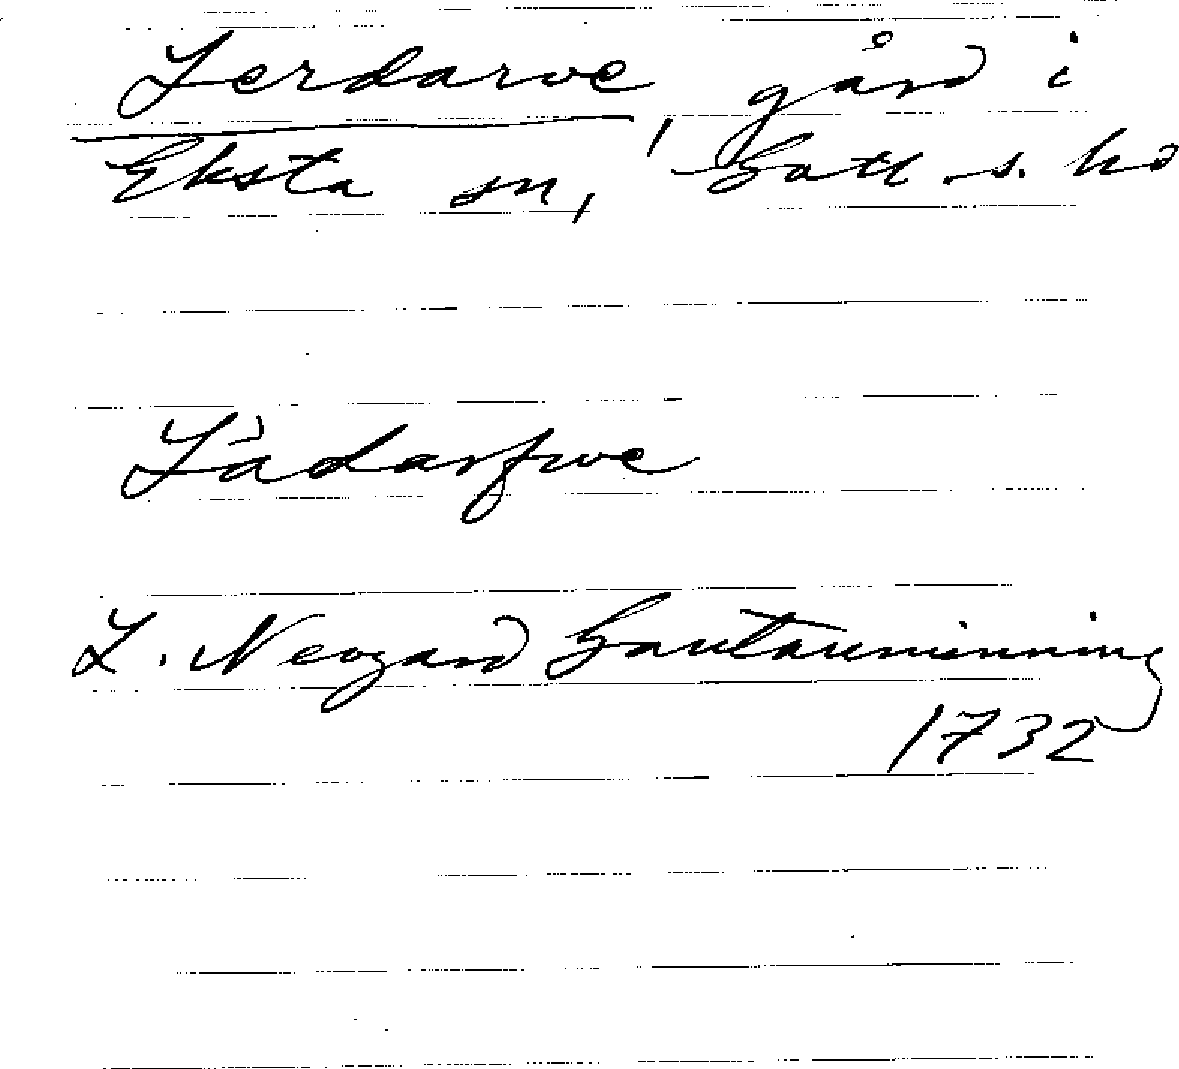 Lerdarve, gård i
Eksta sn, Gotl. s. hd
Làdarfwe
L. Neogard Gautauminning
1732